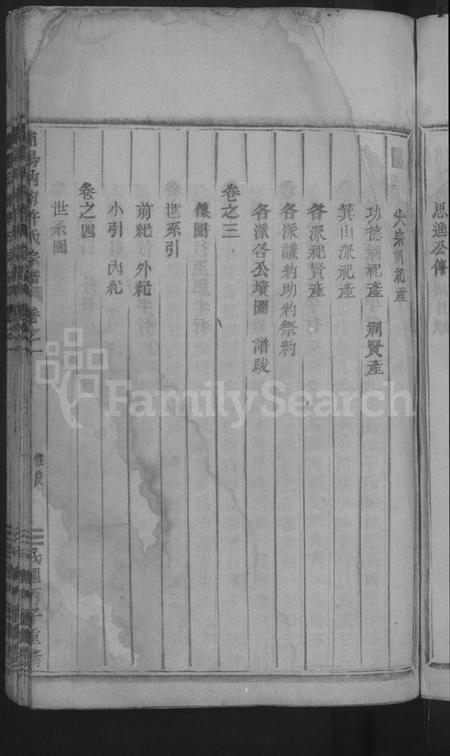 思進公傳
大宗祠祀產
功德祠祀產 祠賢產
箕山派祀產
各派祀賢產
各派議約助約祭約
各派各公墳圖 譜跋
卷之三
像圖
世系引
前紀 外紀
小引 內紀
卷之四
世系圖
許氏宗譜 卷之一
民國丙子重脩
FamilySearch